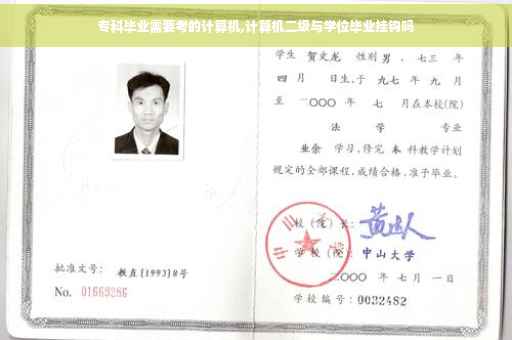 专科毕业需要考的计算机,计算机二级与学位毕业挂钩吗
学生 贺文龙 性别 男 、七三 年
四 月 日生,于 九七 年 九 月
至 二〇〇〇 年 七 月在本校(院)
法 学 专业
业余 学习,修完 本 科教学计划
规定的全部课程,成绩合格,准予毕业。
校(院)长:
学校(院): 中山大学
二〇〇〇 年 七 月 一 日
批准文号: 教直[1993]8号
No. 01663286
学校编号: 0032482